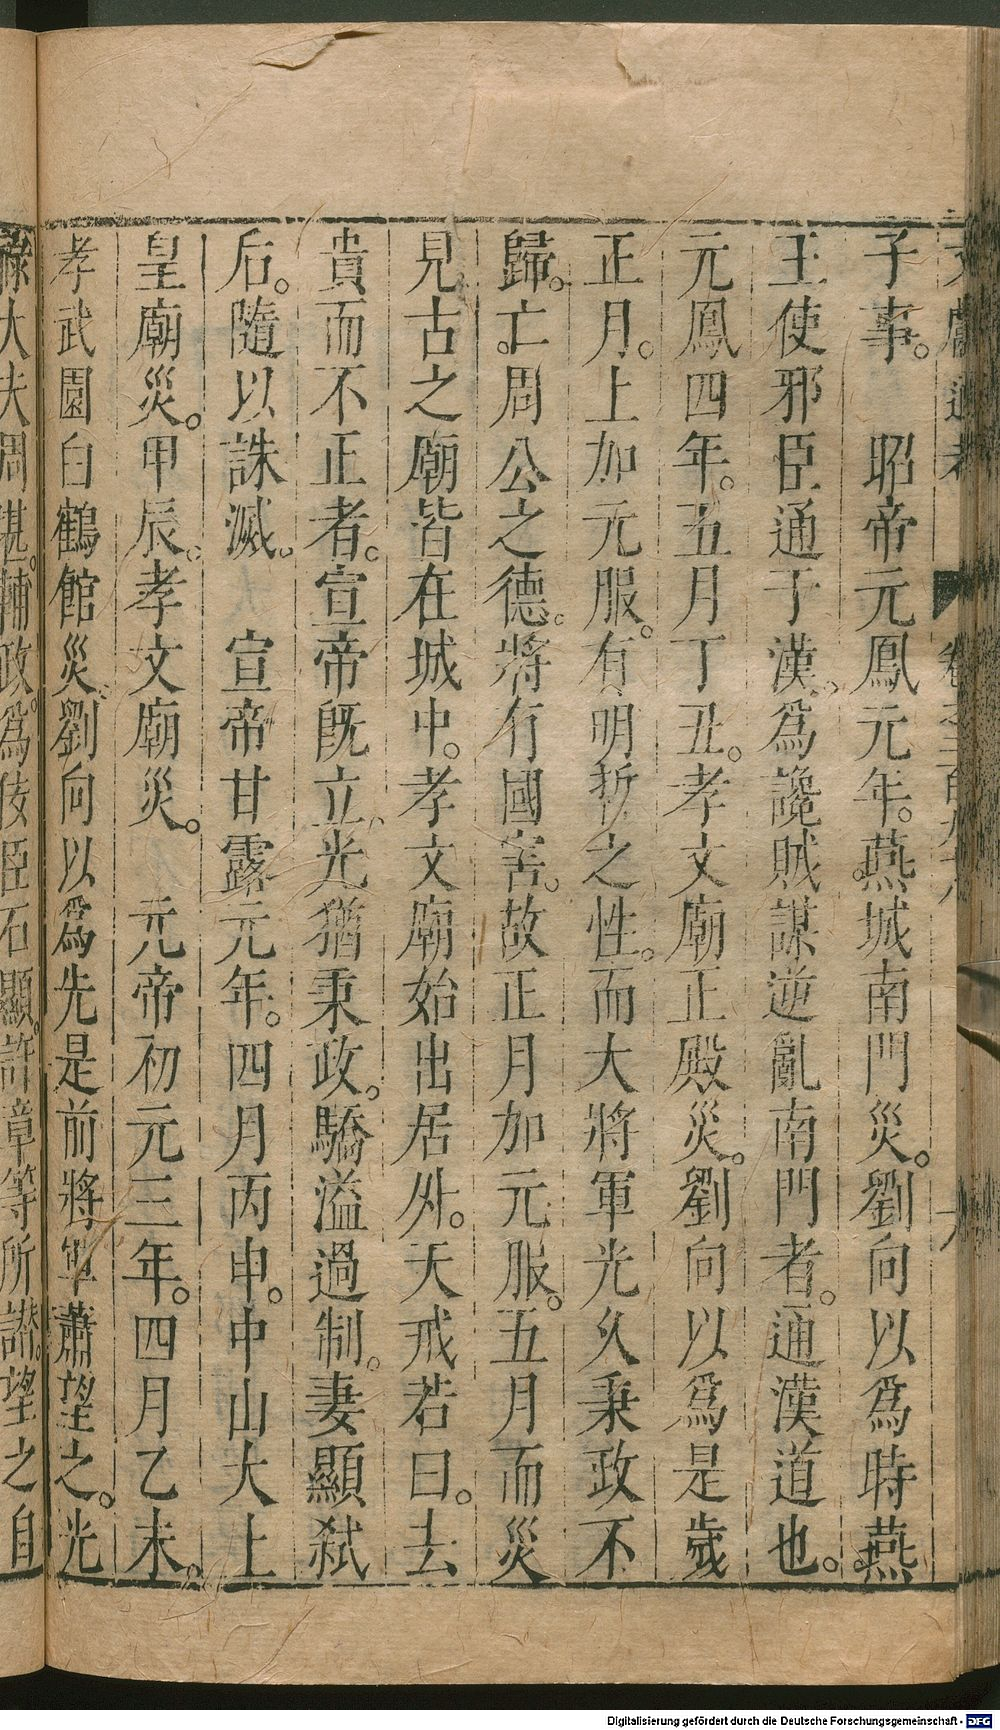 子事。　昭帝元鳳元年。燕城南門災。劉向以爲時燕
王使邪臣通于漢。爲讒賊謀逆亂南門者。通漢道也。
元鳳四年。五月丁丑。孝文廟正殿災。劉向以爲是歲
正月。上加元服。有明哲之性。而大將軍光久秉政不
歸。亡周公之德。將有國害。故正月加元服。五月而災
見古之廟皆在城中。孝文廟始出居外。天戒若曰。去
貴而不正者。宣帝旣立。光猶秉政。驕溢過制。妻顯弑
后。隨以誅滅。　宣帝甘露元年。四月丙申。中山大上
皇廟災。甲辰。孝文廟災。　元帝初元三年。四月乙未。
孝武園白鶴館災。劉向以爲先是前將軍蕭望之。光
祿大夫周堪。輔政。爲佞臣石顯。許章等所譖。望之自
Digitalisierung gefördert durch die Deutsche Forschungsgemeinschaft - DFG